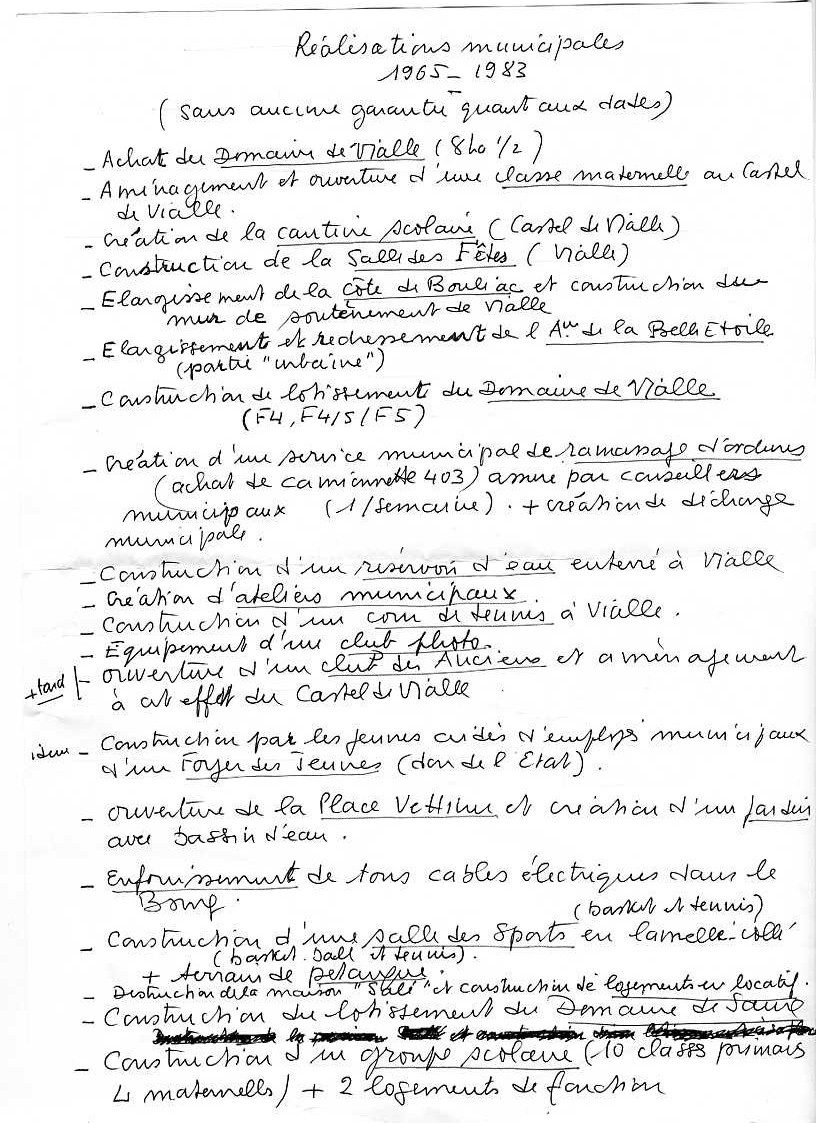 Réalisations municipales
1965 - 1983
(sans aucune garantie quant aux dates)
- Achat du Domaine de Vialle (8 ha 1/2)
- Aménagement et ouverture d'une classe maternelle au Castel
de Vialle.
- Création de la cantine scolaire (Castel de Vialle)
- Construction de la Salle des Fêtes (Vialle)
- Elargissement de la côte de Bouliac et construction du
mur de soutènement de Vialle
- Elargissement et redressement de l'Aue de la Belle Etoile
(partie "urbaine")
- Construction de lotissements du Domaine de Vialle
(F4, F4/5/F5)
- Création d'une service municipal de ramassage d'ordures
(achat de camionnette 403) assuré par conseillers
municipaux (1/semaine). + création de décharge
municipale.
- Construction d'un réservoir d'eau enterré à Vialle
- Création d'ateliers municipaux.
- Construction d'un court de tennis à Vialle.
- Equipement d'un club photo.
+ tard - Ouverture d'un club des Anciens et aménagement
à cet effet du Castel de Vialle
idem - Construction par les jeunes aidés d'employés municipaux
d'un Foyer des Jeunes (don de l'Etat).
- Ouverture de la Place et création d'un jardin
avec bassin d'eau.
- Enfouissement de tous cables électriques dans le
Bourg.
(basket et tennis)
- Construction d'une salle des Sports en lamellé-collé
(basket-ball et tennis).
+ terrain de pétanque.
- Destruction de la maison et construction de logements en locatif.
- Construction du lotissement du Domaine de
- Construction d'un groupe scolaire (10 classes primaires
4 maternelles) + 2 logements de fonction